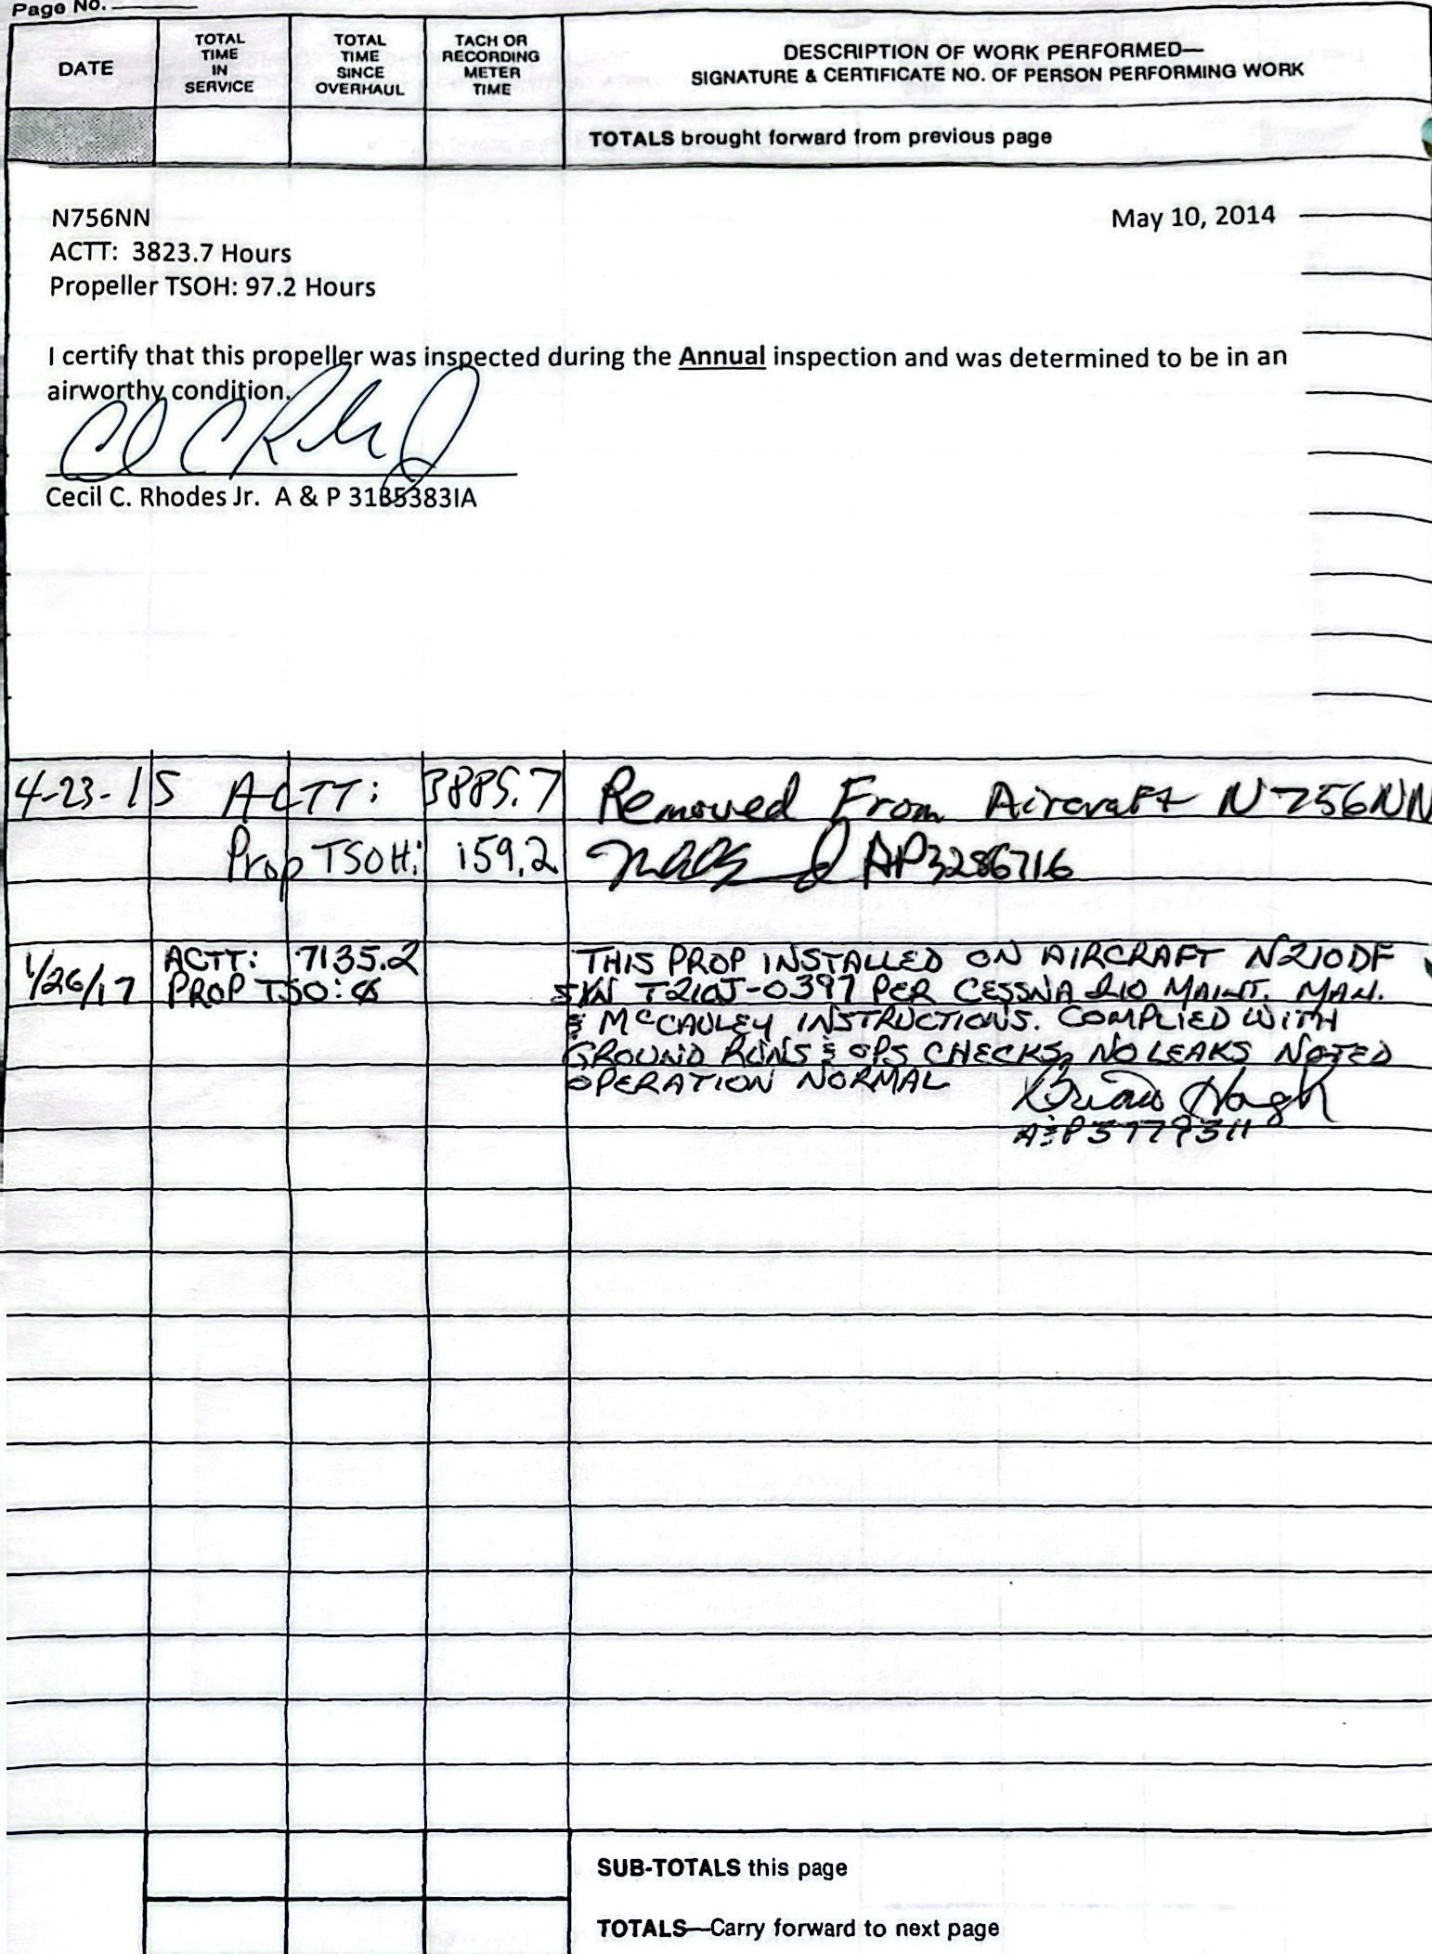 Page No.
DATE
TOTAL TIME IN SERVICE
TOTAL TIME SINCE OVERHAUL
TACH OR RECORDING METER TIME
DESCRIPTION OF WORK PERFORMED—
SIGNATURE & CERTIFICATE NO. OF PERSON PERFORMING WORK
TOTALS brought forward from previous page
N756NN May 10, 2014
ACTT: 3823.7 Hours
Propeller TSOH: 97.2 Hours
I certify that this propeller was inspected during the Annual inspection and was determined to be in an
airworthy condition.
Cecil C. Rhodes Jr. A & P 31B5383IA
4-23-15 ACTT: 3885.7 Removed From Aircraft N756NN
Prop TSOH: 159.2 AP3286716
1/26/17 ACTT: 7135.2 THIS PROP INSTALLED ON AIRCRAFT N210DF
PROP TSO: S/N T210J-0397 PER CESSNA 210 MAINT. MAN.
& McCAULEY INSTRUCTIONS. COMPLIED WITH
GROUND RUNS & OPS CHECKS, NO LEAKS NOTED
OPERATION NORMAL Brian Hagh
A&P
SUB-TOTALS this page
TOTALS—Carry forward to next page